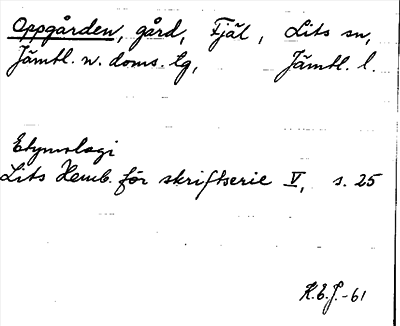 Oppgården, gård, Fjäl, Lits sn,
Jämtl. n. doms. lg, Jämtl. l.
Etymologi
Lits Hemb. för skriftserie V, s. 25
K.E.J.-61